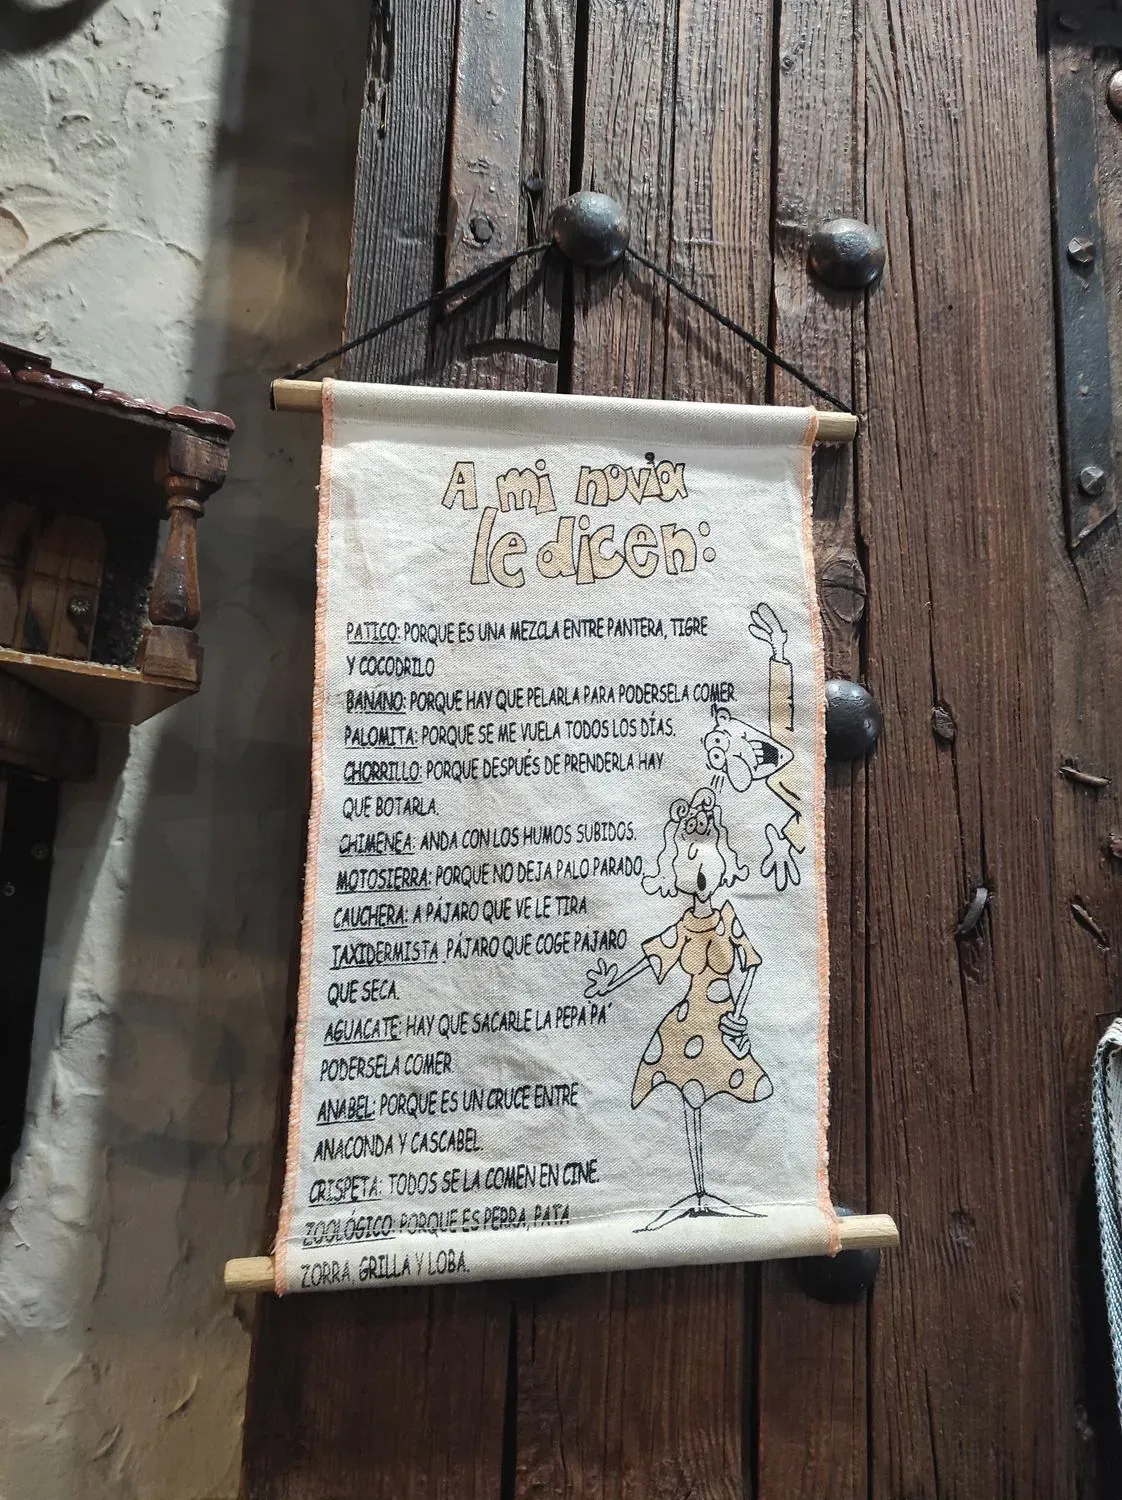 A mi novia
le dicen:
PATICO: PORQUE ES UNA MEZCLA ENTRE PANTERA, TIGRE
Y COCODRILO
BANANO: PORQUE HAY QUE PELARLA PARA PODERSELA COMER
PALOMITA: PORQUE SE ME VUELA TODOS LOS DÍAS.
CHORRILLO: PORQUE DESPUÉS DE PRENDERLA HAY
QUE BOTARLA.
CHIMENEA: ANDA CON LOS HUMOS SUBIDOS.
MOTOSIERRA: PORQUE NO DEJA PALO PARADO.
CAUCHERA: A PÁJARO QUE VE LE TIRA
TAXIDERMISTA PÁJARO QUE COGE PAJARO
QUE SECA.
AGUACATE: HAY QUE SACARLE LA PEPA PA´
PODERSELA COMER.
ANABEL: PORQUE ES UN CRUCE ENTRE
ANACONDA Y CASCABEL.
CRISPETA: TODOS SE LA COMEN EN CINE.
ZOOLÓGICO: PORQUE ES PERRA, PATA
ZORRA, GRILLA Y LOBA.